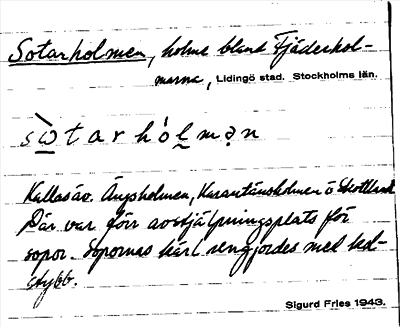 Sotarholmen, holme bland Fjäderhol-
marna, Lidingö stad. Stockholms län.
sὼtarhól̥mən
Kallas äv. Ängsholmen, Karantänsholmen o Skottland
Där var förr avstjälpningsplats för
sopor. Sopornas kärl rengjordes med kol-
stybb.
Sigurd Fries 1943.